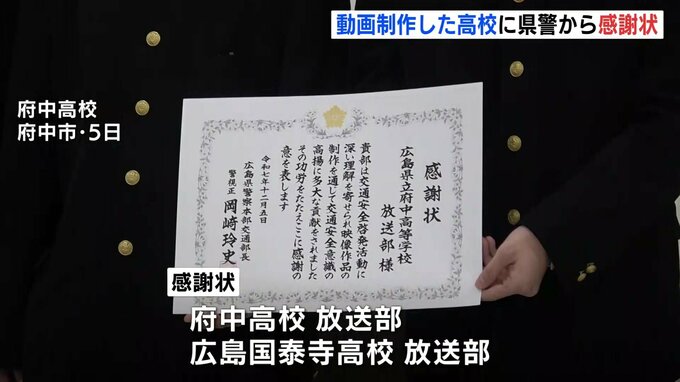 動画制作した高校に県警から感謝状
府中高校
府中市・5日
感謝状
広島県立府中高等学校
放送部 様
貴部は交通安全啓発活動に
深い理解を寄せられ映像作品の
制作を通して交通安全意識の
高揚に多大な貢献をされました
その功労をたたえここに感謝の
意を表します
令和七年十二月五日
広島県警察本部交通部長
警視正 岡崎玲史
感謝状
府中高校 放送部
広島国泰寺高校 放送部